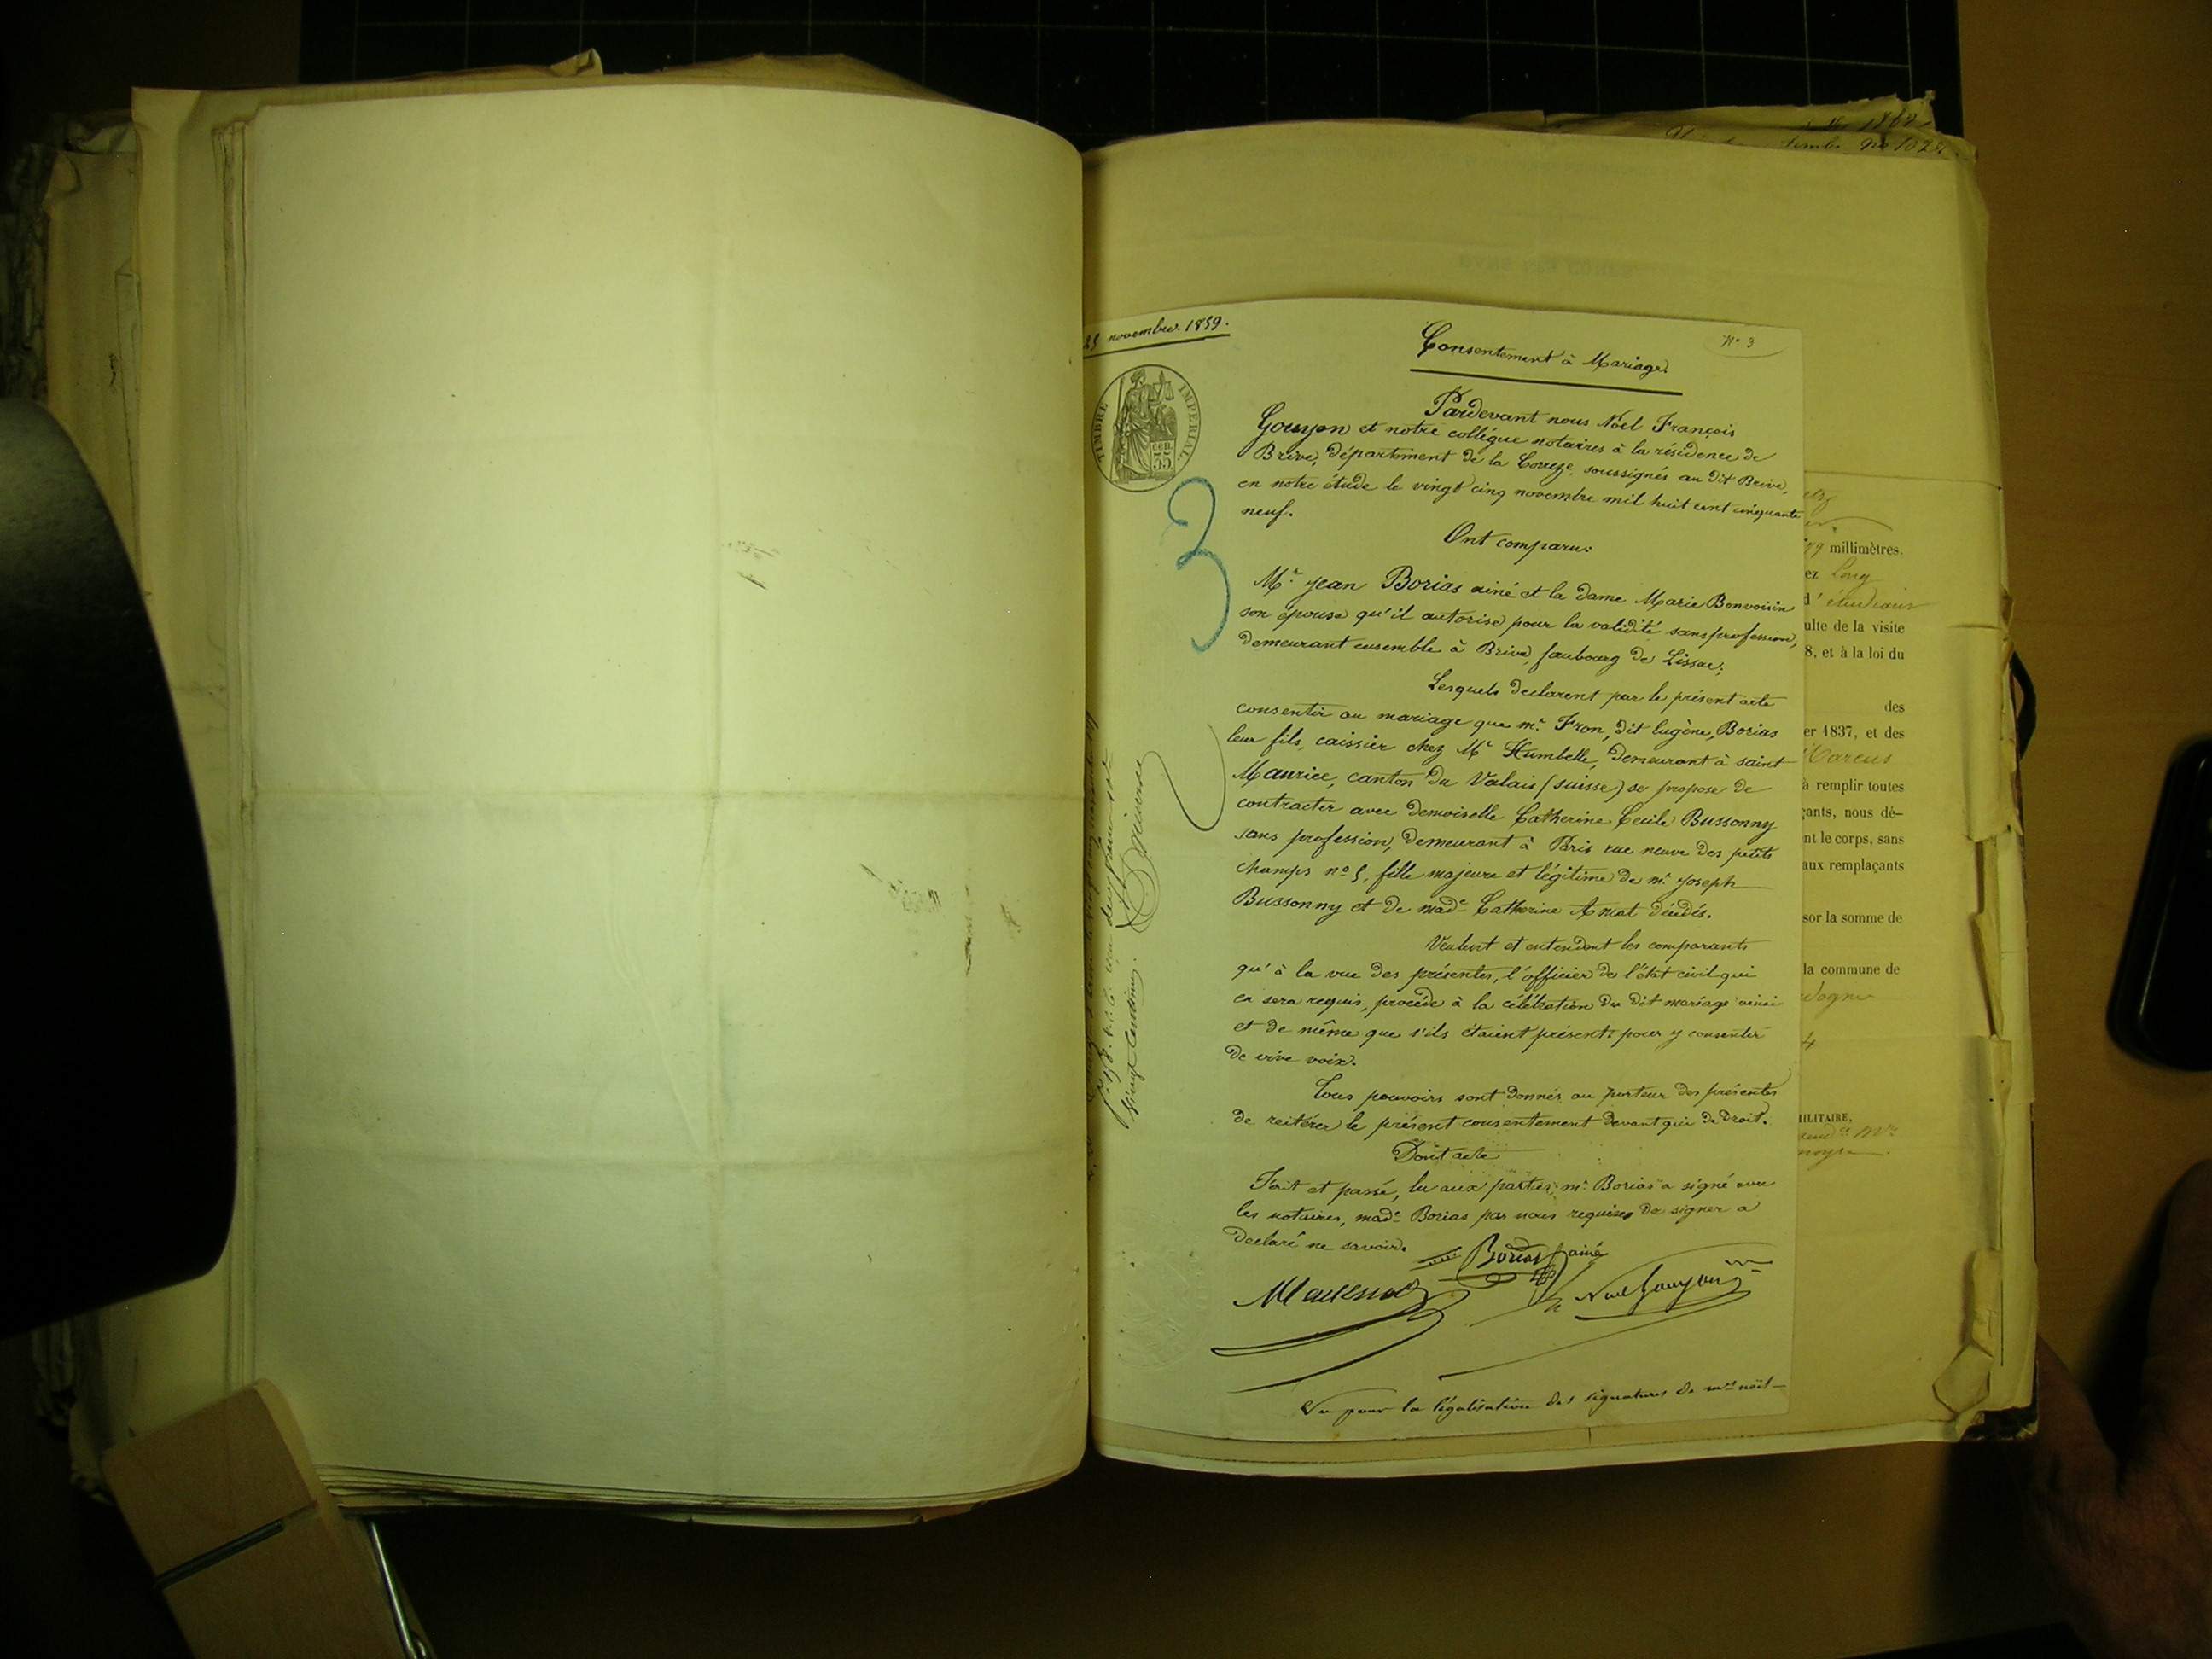 25 novembre 1859.
N° 3
Consentement à Mariage.
TIMBRE IMPERIAL
CEN. 35
3
Pardevant nous Noël François
Gouyon et notre collégue notaires à la résidence de
Brive, départment de la Corrèze, soussignés au dit Brive,
en notre étude le vingt cinq novembre mil huit cent cinquante
neuf.
Ont comparu:
Mr. Jean Borias ainé et la dame Marie Bonvoisin
son épouse qu'il autorise pour la validité sans profession,
demeurant ensemble à Brive, faubourg de Lissac;
Lesquels declarent par le présent acte
consentir au mariage que mr. Fron, dit Eugène, Borias
leur fils, caissier chez Mr Humbelle, demeurant à saint
Maurice, canton du Valais (suisse) se propose de
contracter avec demoiselle Catherine Cecile Bussonny
sans profession, demeurant à Paris rue neuve des petits
champs no 5, fille majeure et légitime de mr. Joseph
Bussonny et de made Catherine Amat décédés.
Veulent et entendent les comparants
qu'à la vue des présentes, l'officier de l'état civil qui
en sera requis, procède à la célébration du dit mariage ainsi
et de même que s'ils étaient présents pour y consentir
de vive voix.
Tous pouvoirs sont donnés au porteur des présentes
de reitérer le présent consentement devant qui de droit.
Dont acte
Fait et passé, lu aux parties, mr. Borias a signé avec
les notaires, made Borias par nous requise de signer a
declaré ne savoir.
Borias ainé
Noel Gouyon
Vu pour la légalisation des signatures de mes noël
vingt centimes.
millimètres.
ez long
d'étudiant
ulte de la visite
8, et à la loi du
des
er 1837, et des
à remplir toutes
çants, nous dé-
nt le corps, sans
aux remplaçants
sor la somme de
la commune de
4
ILITAIRE,